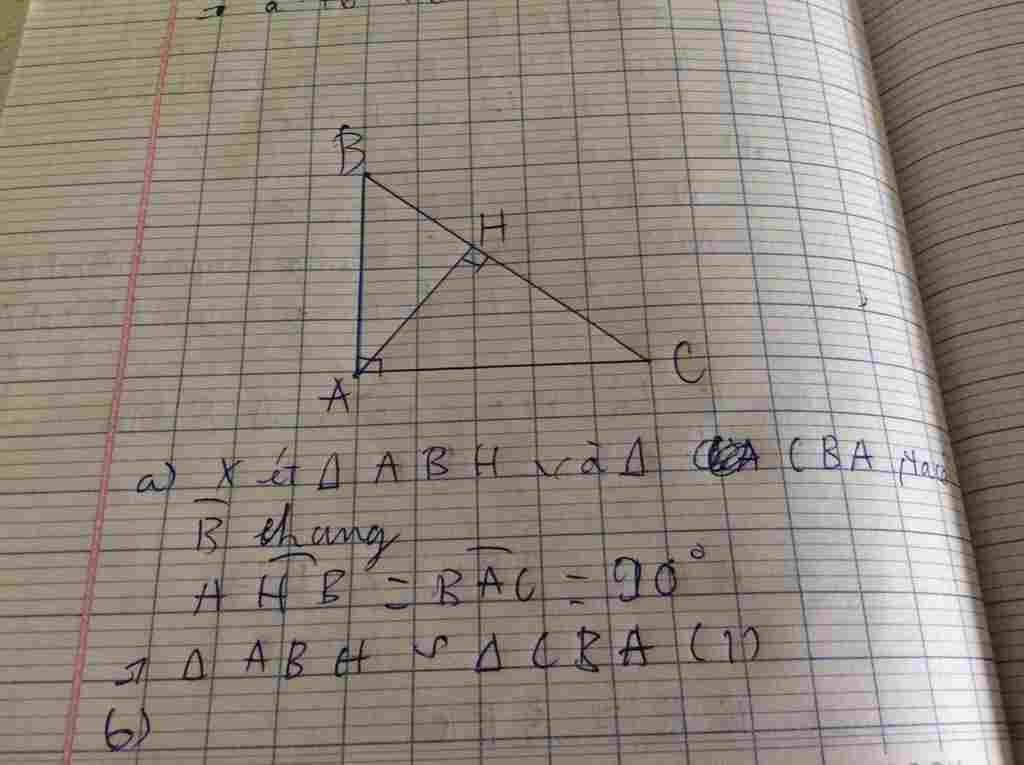 B
H
A
C
a) Xét Δ ABH và Δ CBA
B chung
AHB = BAC = 90°
Δ ABH ∽ Δ CBA (1)
b)